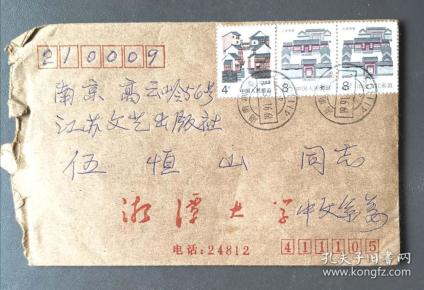 210009
南京 高云岭56号
江苏文艺出版社
伍恒山 同志
湘潭大学中文系
电话:24812
411105
4分
中国人民邮政
8
中国人民邮政
8
孔夫子旧书网
www.kongfz.com